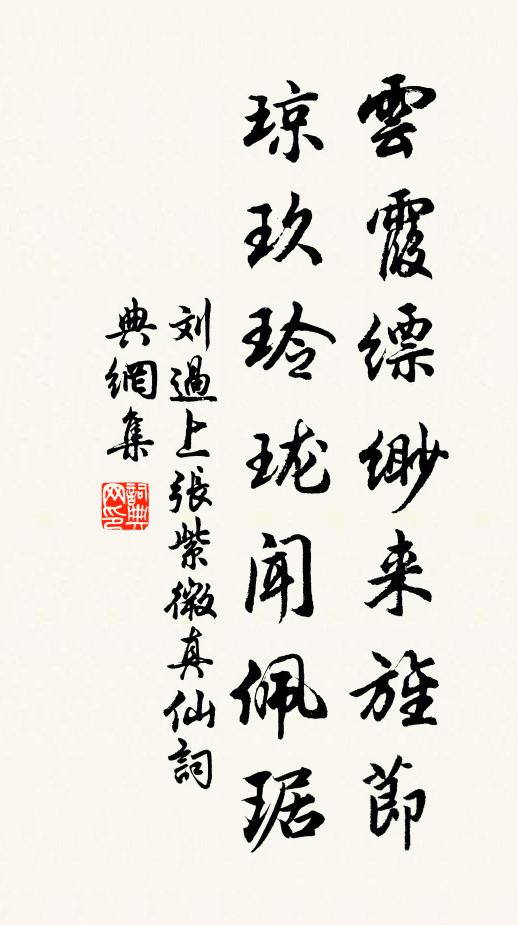 雲霞縹緲来旌節
琼玖玲珑闻佩琚
刘過上張紫微真仙詞
典網集
詞典网印